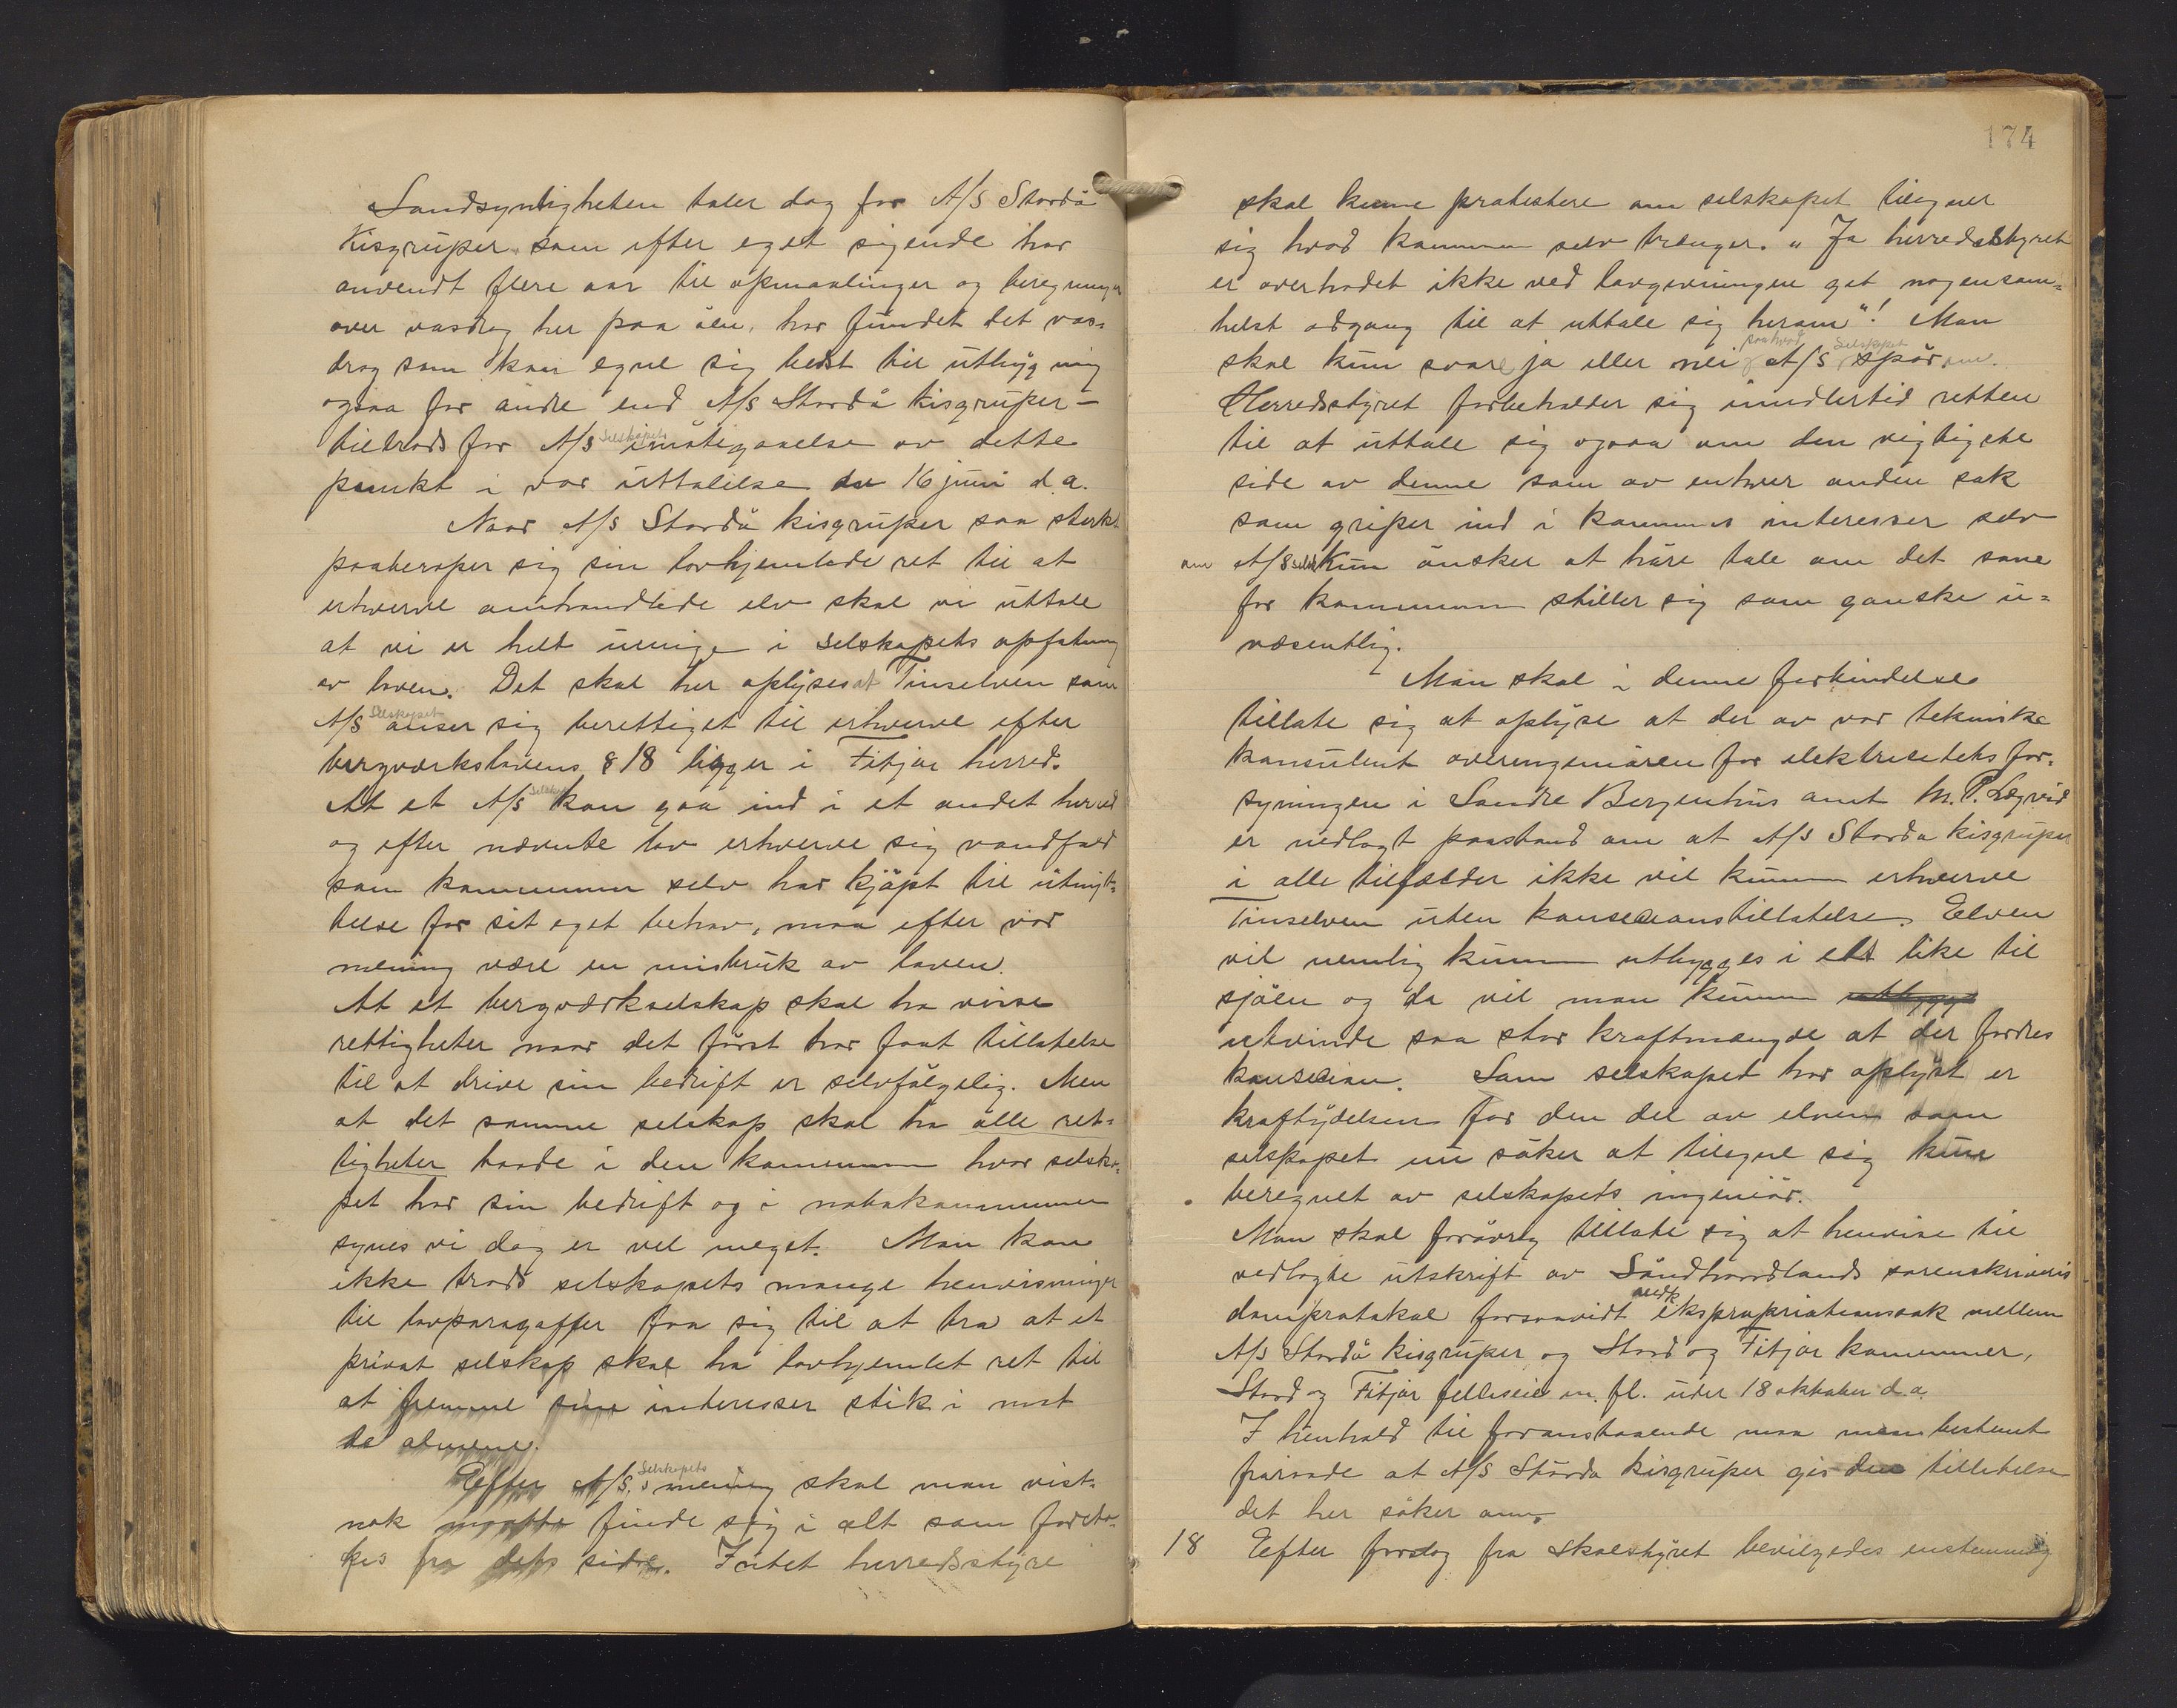 Sandsynligheten taler dog for A/S Stordø
Kisgruper som efter eget sigende har
anvendt flere aar til opmaalinger og beregninger
over vasdrag her paa øen, har fundet det vas-
drag som kan egne sig bedst til utbygning
ogsaa for andre end A/S Stordø kisgruper –
tiltrods for A/S Selskapets imøtegaaelse av dette
punkt i vor uttalelse av 16 juni d.a.
Naar A/S Stordø kisgruper saa sterkt
paaberoper sig sin lovhjemlede ret til at
erhverve omhandlede elv skal vi uttale
at vi er helt uenige i selskapets opfatning
av loven. Det skal her oplyses at Tinselven som
A/S Selskapet anser sig berettiget til erhverve efter
bergværkslovens § 18 ligger i Fitjar herred.
At et A/S Selskap kan gaa ind i et andet herred
og efter nævnte lov erhverve sig vandfald
som kommunen selv har kjøpt til utnyt-
telse for sit eget behov, maa efter vor
mening være en misbruk av loven.
At et bergværkselskap skal ha visse
rettigheter naar det først har faat tillatelse
til at drive sin bedrift er selvfølgelig. Men
at det samme selskap skal ha alle ret-
tigheter baade i den kommune hvor selska-
pet har sin bedrift og i nabokommunen
synes vi dog er vel meget. Man kan
ikke trods selskapets mange henvisninger
til lovparagaffer faa sig til at tro at et
privat selskap skal ha lovhjemlet ret til
at fremme sine interesser stik i mot
de almene.
Eefter A/S. Selskapets mening skal man vist-
nok maatte finde sig i alt som foreta-
kes fra dets side. Intet herredsstyre
174
skal kunne protestere om selskapet tilegner
sig hvad kommunen selv trænger. „Ja herredsstyret
er overhodet ikke ved lovgivningen get nogensom-
helst adgang til at uttale sig herom"! Man
skal kun svare ja eller nei paa hvad A/S Selskapet spør om.
Herredsstyret forbeholder sig imidlertid retten
til at uttale sig ogsaa om den vigtigste
side av denne som av enhver anden sak
som griper ind i kommunes interesser selv
om A/S selsk kun ønsker at høre tale om det som
for kommunen stiller sig som ganske u-
væsentlig.
Man skal i denne forbindelse
tillate sig at oplyse at der av vor tekniske
konsulent overingeniøren for elektricitetsfor-
syningen i Søndre Bergenhus amt hr. P. Lægreid
er nedlagt paastand om at A/S Stordø kisgruper
i alle tilfælder ikke vil kunne erhverve
Tinselven uten konsesionstillatelse. Eelven
vil nemlig kunne utbygges i ett like til
sjøen og da vil man kunne utbygge
utvinde saa stor kraftmængde at der fordres
konsesion. Som selskapet har oplyst er
kraftydelsen for den del av elven som
selskapet nu søker at tilegne sig kun
beregnet av selskapets ingeniør.
Man skal forøvrig tillate sig at henvise til
vedlagte utskrift av Søndhordlands sorenskriveris
domprotokol forsaavidt vedk ekspropriationssak mellem
A/S Stordø kisgruper og Stord og Fitjar kommuner,
Stord og Fitjar felleseie m. fl. under 18 oktober d.a.
I henhold til foranstaaende maa man bestemt
fraraade at A/S Stordø kisgruper gis den tilletelse
det her søker om.
18 Eefter forslag fra Skolestyret bevilgedes enstemmig